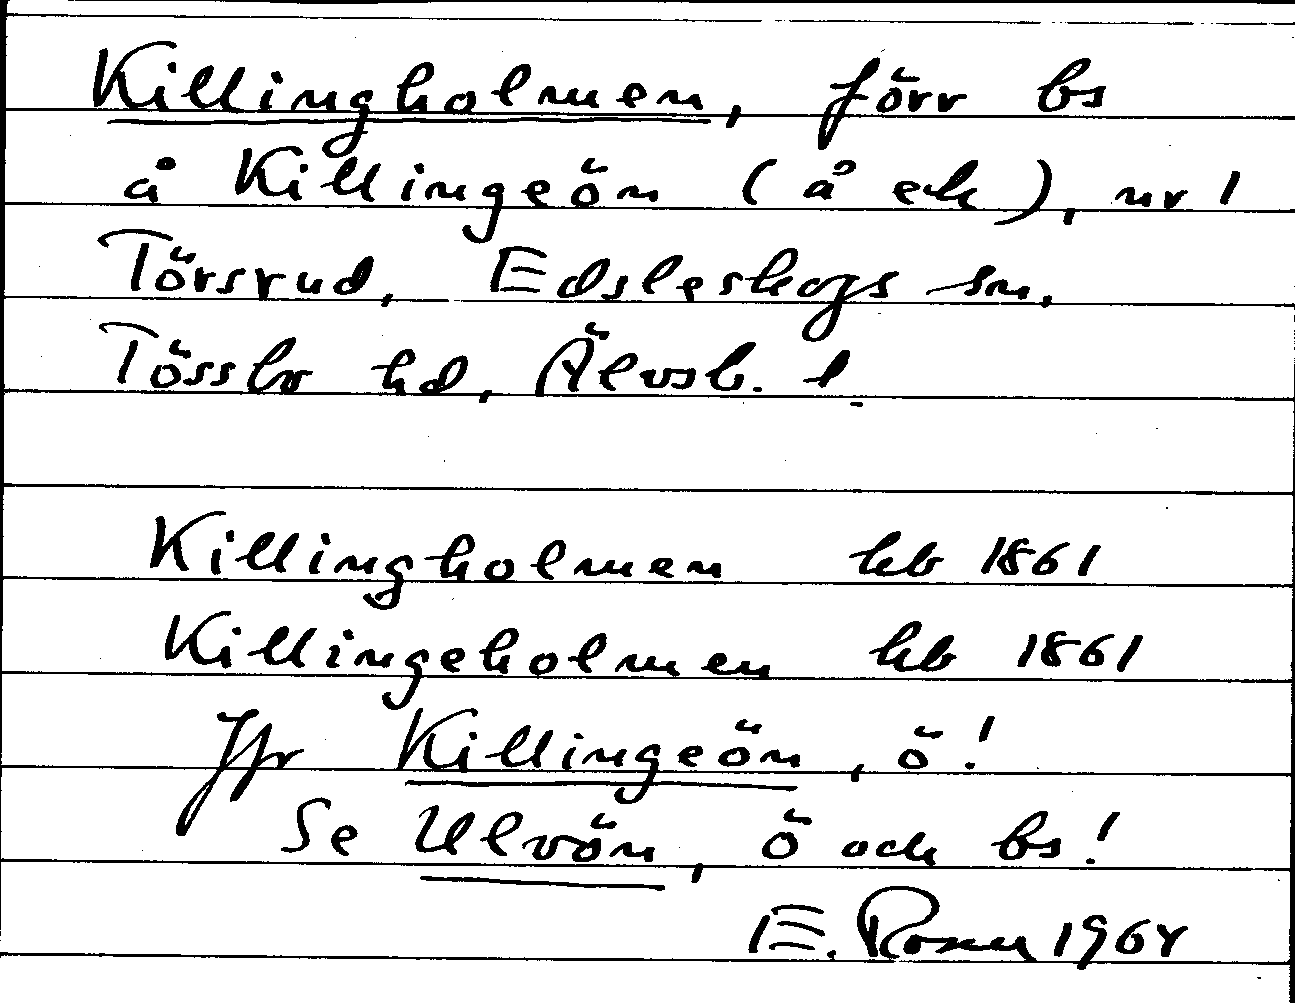 Killingholmen, förr bs
å Killingeön (å ek), nr 1
Törsrud, Edsleskogs sn,
Tössbo hd, Älvsb. l.
Killingholmen hb 1861
Killingeholmen hb 1861
Jfr Killingeön, ö!
Se Ulvön, ö och bs!
E. Rosen 1964